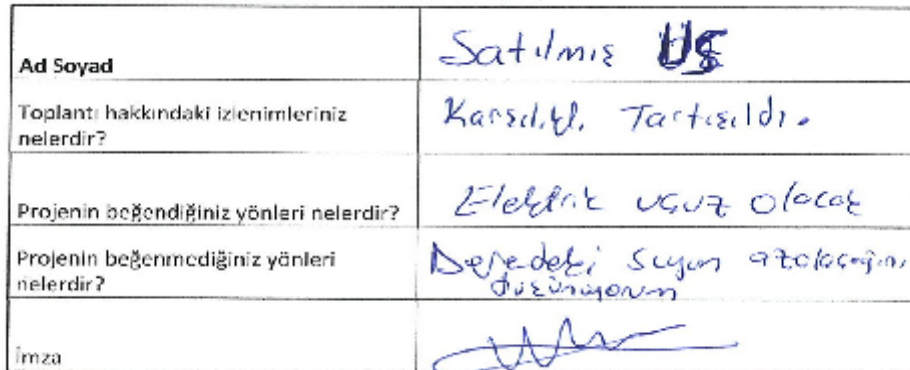 Ad Soyad
Satılmış Uş
Toplantı hakkındaki izlenimleriniz
nelerdir?
Karşılıklı Tartışıldı.
Projenin beğendiğiniz yönleri nelerdir?
Elektrik ucuz olacak
Projenin beğenmediğiniz yönleri
nelerdir?
Deredeki suyun az olacağını
düşünüyorum
İmza